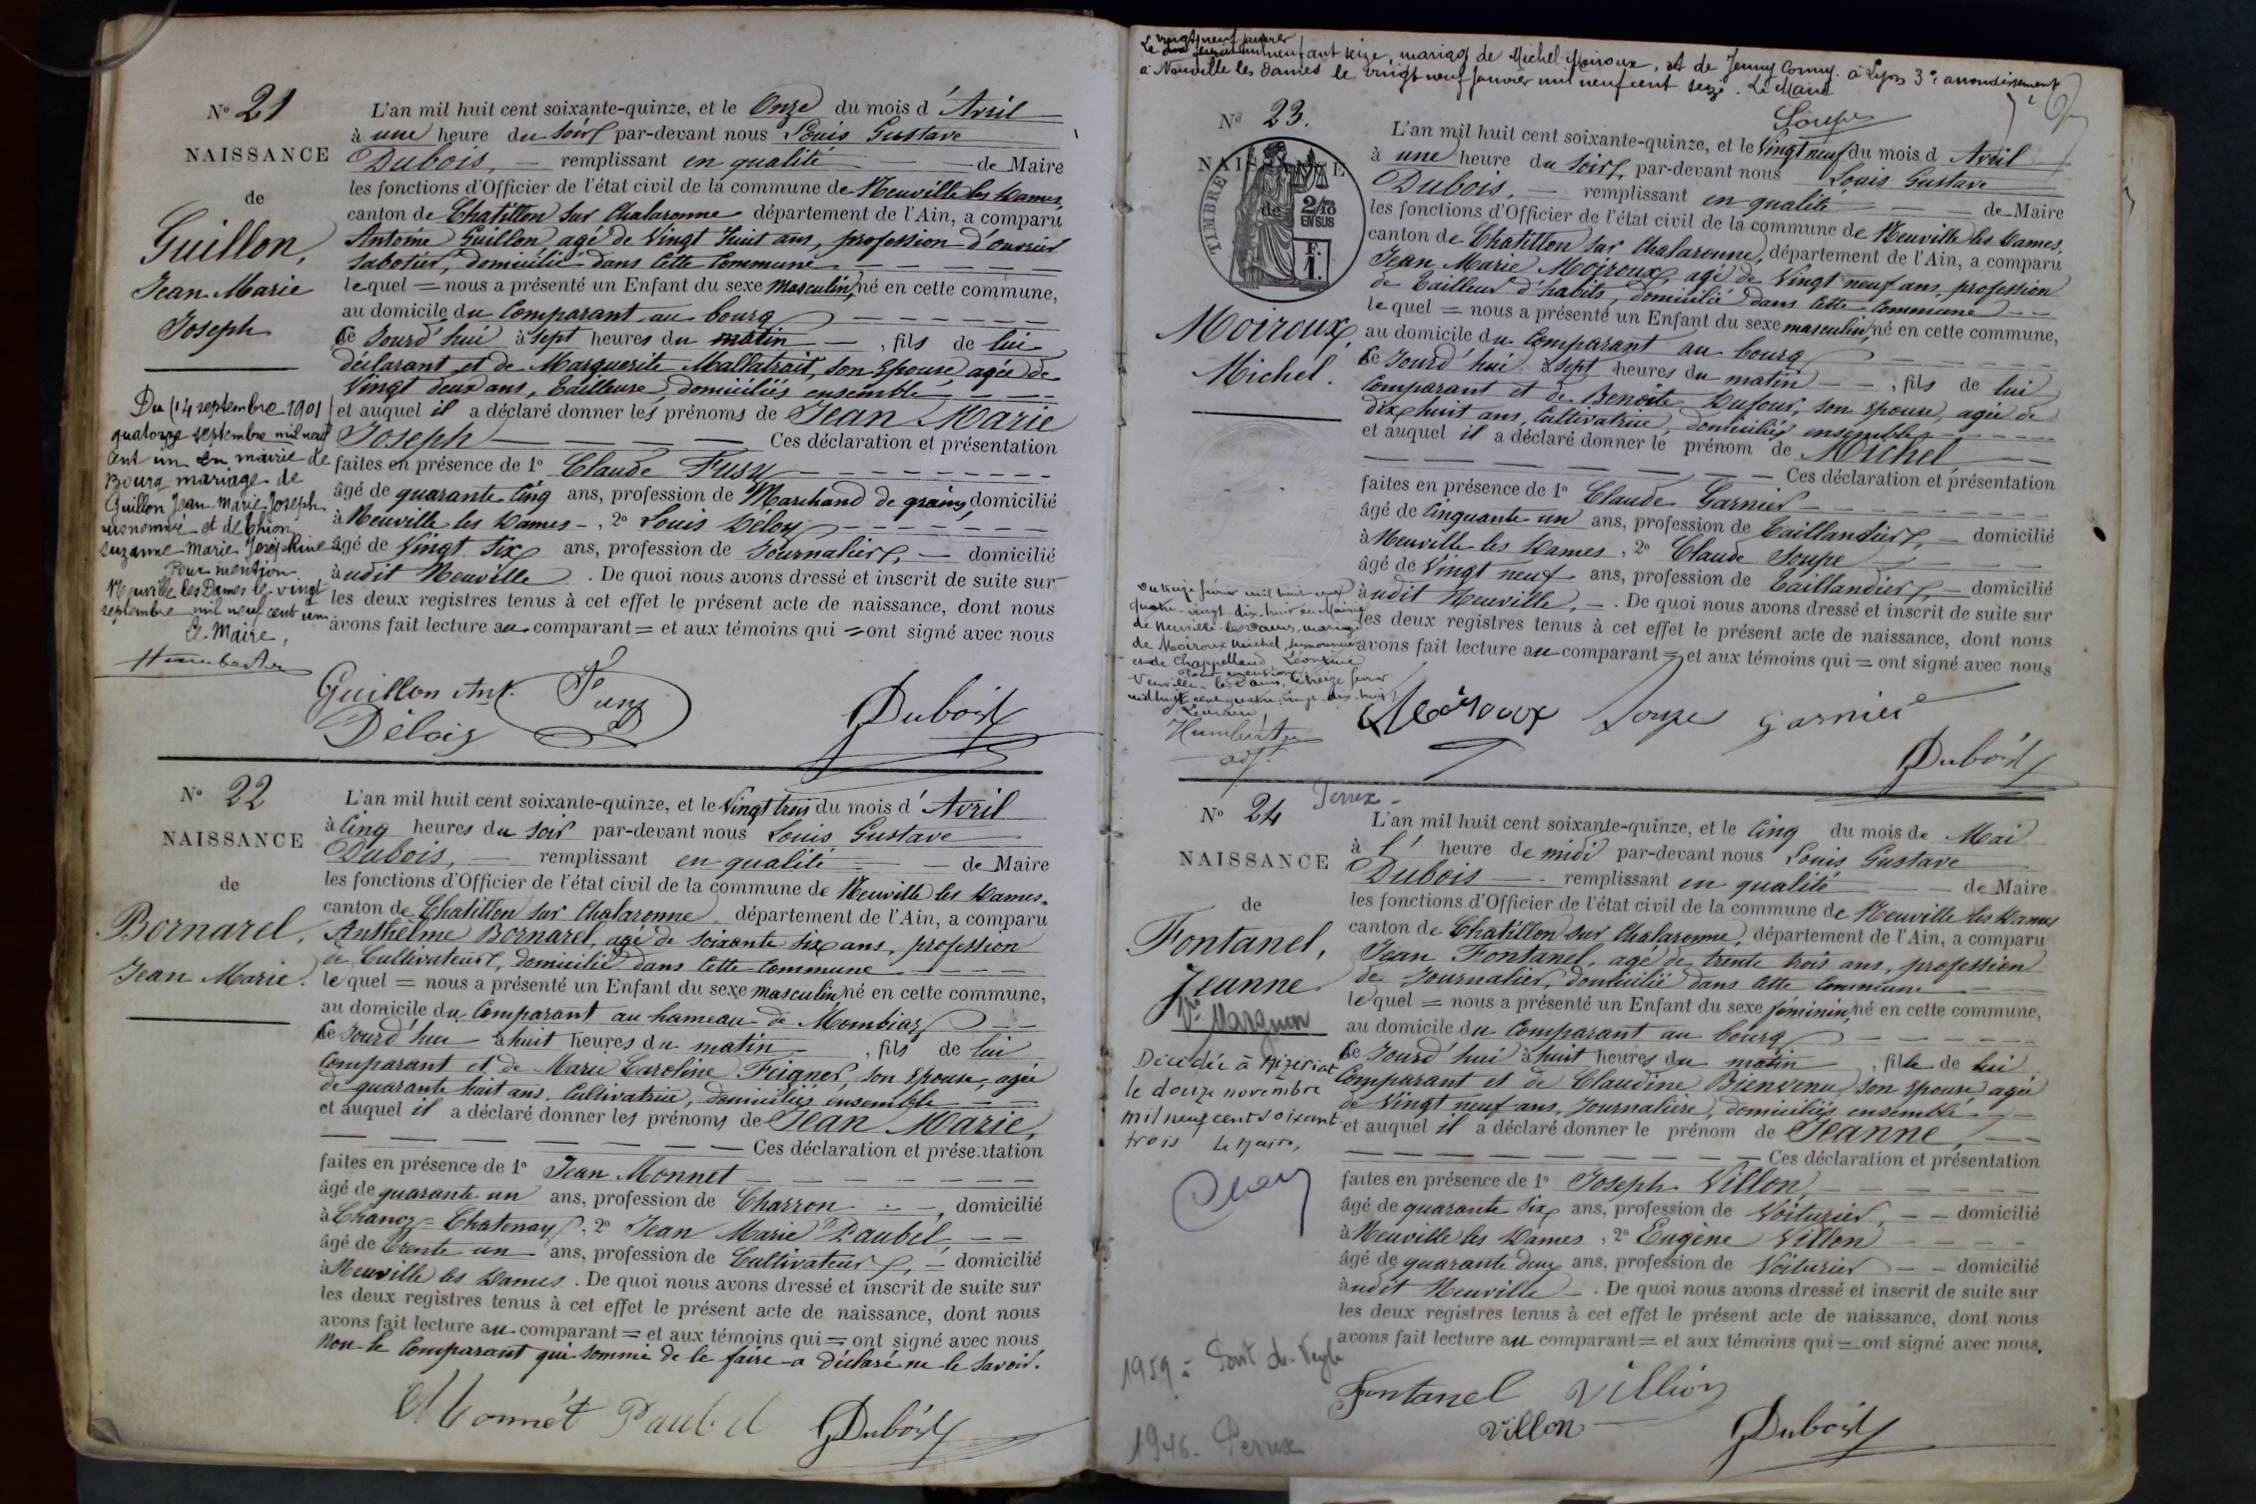 N° 21
NAISSANCE
de
Guillon,
Jean Marie
Joseph
L'an mil huit cent soixante-quinze, et le Onze du mois d'Avril
à une heure du soir par-devant nous Louis Gustave
Dubois, — remplissant en qualité — de Maire
les fonctions d'Officier de l'état civil de la commune de Neuville les Dames,
canton de Chatillon sur Chalaronne département de l'Ain, a comparu
Antoine Guillon agé de Vingt huit ans, profession d'ouvrier
Sabotier, domicilié dans cette Commune
lequel = nous a présenté un Enfant du sexe masculin, né en cette commune,
au domicile du Comparant au bourg
ce Jourd'hui à sept heures du matin —, fils de lui
déclarant et de Marguerite Mallatrait, son Epouse, agée de
Vingt deux ans, Tailleuse, domiciliés ensemble
et auquel il a déclaré donner les prénoms de Jean Marie
Joseph — Ces déclaration et présentation
faites en présence de 1° Claude Fusy
âgé de quarante cinq ans, profession de Marchand de grains, domicilié
à Neuville les Dames -, 2° Louis Déloy
âgé de Vingt six ans, profession de Journalier, — domicilié
audit Neuville. De quoi nous avons dressé et inscrit de suite sur
les deux registres tenus à cet effet le présent acte de naissance, dont nous
avons fait lecture au comparant = et aux témoins qui = ont signé avec nous
Du (14 septembre 1901)
quatorze septembre mil neuf
cent un en mairie de
Bourg mariage de
Guillon Jean Marie Joseph
susnommé et de Chion
Suzanne Marie Joséphine
Pour mention
Neuville les Dames le vingt
septembre mil neuf cent un
Le Maire,
Guillon Ant. Fusy
Délois Dubois
N° 22
NAISSANCE
de
Bornarel,
Jean Marie.
L'an mil huit cent soixante-quinze, et le Vingt trois du mois d'Avril
à Cinq heures du soir par-devant nous Louis Gustave
Dubois, — remplissant en qualité — de Maire
les fonctions d'Officier de l'état civil de la commune de Neuville les Dames.
canton de Chatillon sur Chalaronne, département de l'Ain, a comparu
Anthelme Bornarel, agé de soixante six ans, profession
de Cultivateur, domicilié dans cette Commune
lequel = nous a présenté un Enfant du sexe masculin, né en cette commune,
au domicile du Comparant au hameau de Mombiaz
ce Jourd'hui à huit heures du matin, fils de lui
Comparant et de Marie Caroline Feignes, son Epouse, agée
de quarante huit ans, Cultivatrice, domiciliés ensemble
et auquel il a déclaré donner les prénoms de Jean Marie,
Ces déclaration et présentation
faites en présence de 1° Jean Monnet
âgé de quarante un ans, profession de Charron —, domicilié
à Chanoz-Chatenay, 2° Jean Marie Paubel,
âgé de Trente un ans, profession de Cultivateur, — domicilié
à Neuville les Dames. De quoi nous avons dressé et inscrit de suite sur
les deux registres tenus à cet effet le présent acte de naissance, dont nous
avons fait lecture au comparant = et aux témoins qui = ont signé avec nous
Non le Comparant qui sommé de le faire a déclaré ne le savoir.
Monnét Paubel Dubois
Le vingt neuf janvier
mil neuf cent seize, mariage de Michel Moiroux, et de Jenny Cormy à Lyon 3e arrondissement
à Neuville les Dames le vingt neuf janvier mil neuf cent seize. Le Maire
Soupe
N° 23.
NAISSANCE
de
TIMBRE
2/10
EN SUS
F.
1.
Moiroux,
Michel.
L'an mil huit cent soixante-quinze, et le Vingt neuf du mois d Avril
à une heure du soir, par-devant nous Louis Gustave
Dubois, — remplissant en qualité — de Maire
les fonctions d'Officier de l'état civil de la commune de Neuville les Dames,
canton de Chatillon sur Chalaronne, département de l'Ain, a comparu
Jean Marie Moiroux, agé de Vingt neuf ans, profession
de Tailleur d'habits, domicilié dans cette Commune
lequel = nous a présenté un Enfant du sexe masculin, né en cette commune,
au domicile du Comparant au bourg
ce Jourd'hui à sept heures du matin —, fils de lui
Comparant et de Benoîte Dufour, son Epouse, agée de
dix huit ans, Cultivatrice, domiciliés ensemble
et auquel il a déclaré donner le prénom de Michel
Ces déclaration et présentation
faites en présence de 1° Claude Garnier
âgé de Cinquante un ans, profession de Taillandier, — domicilié
à Neuville les Dames, 2° Claude Soupe
âgé de Vingt neuf ans, profession de Taillandier, — domicilié
audit Neuville, —. De quoi nous avons dressé et inscrit de suite sur
les deux registres tenus à cet effet le présent acte de naissance, dont nous
avons fait lecture au comparant = et aux témoins qui = ont signé avec nous
Du treize février mil huit cent
quatre-vingt-dix-huit en Mairie
de Neuville-les-Dames, mariage
de Moiroux Michel, susnommé
et de Chappelland Léontine
Pour mention
Neuville-les-Dames, le treize février
mil huit cent quatre-vingt-dix-huit
Humbert
adj.
Moiroux Soupe garnier
Dubois
Perrex -
N° 24
NAISSANCE
de
Fontanel,
Jeanne
Ve Margnon
L'an mil huit cent soixante-quinze, et le Cinq du mois de Mai
à l' heure de midi par-devant nous Louis Gustave
Dubois — remplissant en qualité — de Maire
les fonctions d'Officier de l'état civil de la commune de Neuville les Dames
canton de Chatillon sur Chalaronne, département de l'Ain, a comparu
Jean Fontanel, agé de trente trois ans, profession
de Journalier, domicilié dans cette Commune
lequel = nous a présenté un Enfant du sexe féminin, né en cette commune,
au domicile du Comparant au bourg
ce Jourd'hui à huit heures du matin, fille de lui
Comparant et de Claudine Bienvenu, son épouse agée
de Vingt neuf ans, Journalière, domiciliés ensemble
et auquel il a déclaré donner le prénom de Jeanne,
Ces déclaration et présentation
faites en présence de 1° Joseph Villon,
âgé de quarante six ans, profession de Voiturier, — domicilié
à Neuville les Dames, 2° Eugène Villon
âgé de quarante deux ans, profession de Voiturier — domicilié
audit Neuville —. De quoi nous avons dressé et inscrit de suite sur
les deux registres tenus à cet effet le présent acte de naissance, dont nous
avons fait lecture au comparant = et aux témoins qui = ont signé avec nous.
Décédée à Mézériat
le douze novembre
mil neuf cent soixante
trois Le Maire,
1959 = Pont-de-Veyle
1946 - Perrex
Fontanel Villion
Villon Dubois